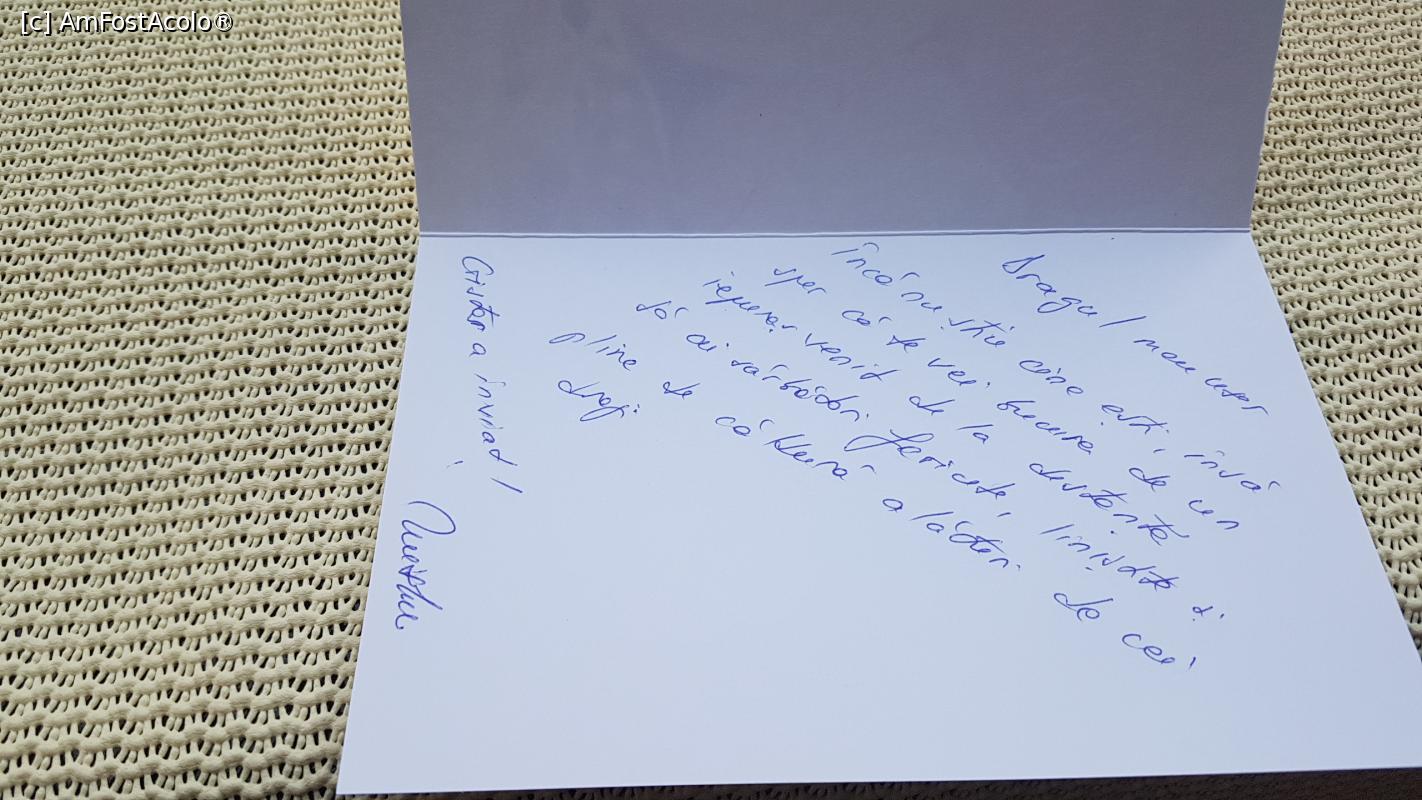 [c] AmFostAcolo®
Dragul meu user
Încă nu știu cine ești, însă
sper că te vei bucura de un
iepuraș venit de la distanță
să ai sărbători fericite, liniștite și
pline de căldură alături de cei
dragi
Cristos a inviat!